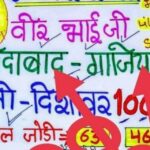 वीर भाई जी
दाबाद - गाजिय
दिसावर 100
ल जोडी = 63 46